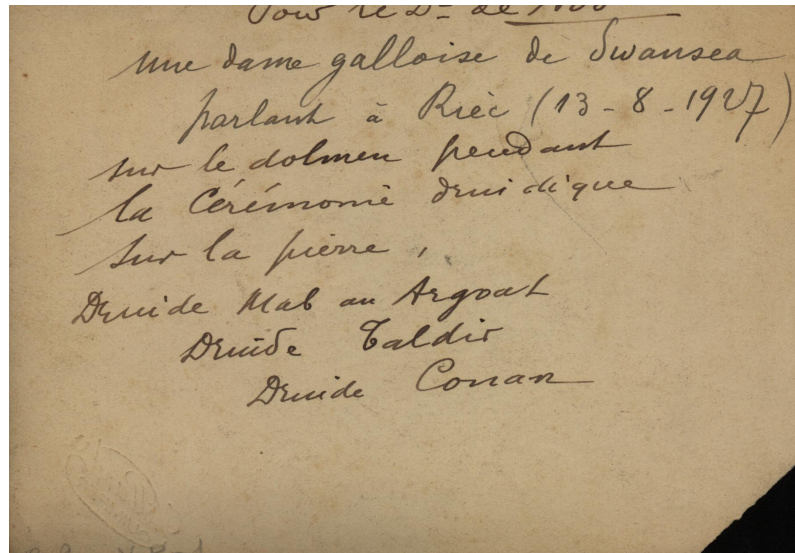 Pour le Dr de
une dame galloise de Swansea
parlant à Riec (13-8-1927)
sur le dolmen pendant
la Cérémonie druidique
sur la pierre,
Druide Mab an Argoat
Druide Taldir
Druide Conan